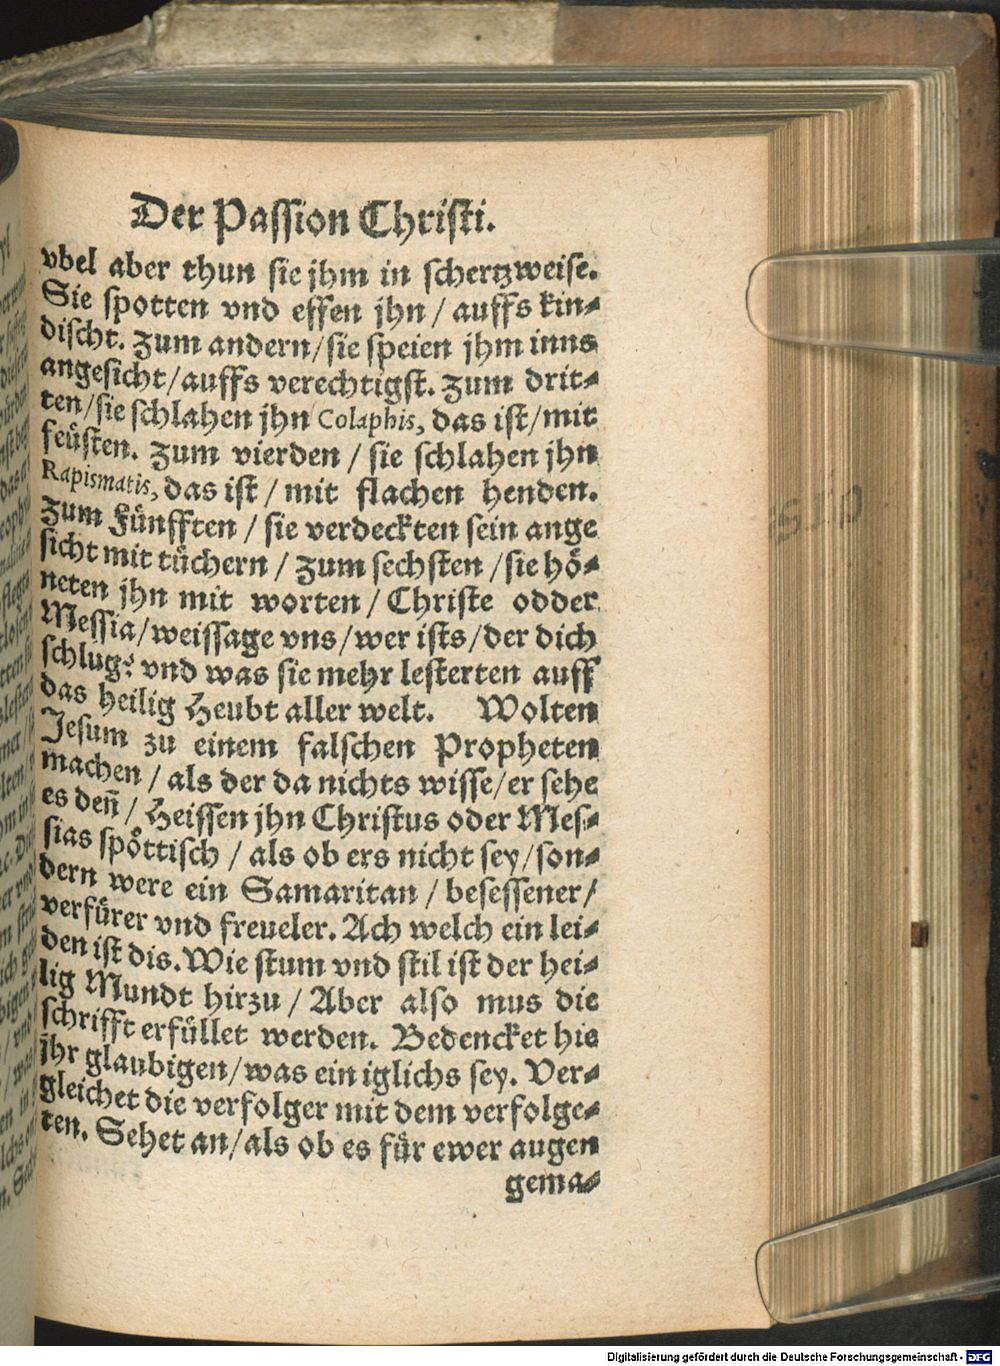 Der Passion Christi.
vbel aber thun sie jhm in schertzweise.
Sie spotten vnd effen jhn / auffs kin⸗
discht. Zum andern/sie speien jhm inns
angesicht/auffs verechtigst. Zum drit⸗
ten/sie schlahen jhn Colaphis, das ist/mit
feüsten. Zum vierden / sie schlahen jhn
Rapismatis, das ist / mit flachen henden.
Zum Fünfften / sie verdeckten sein ange
sicht mit tüchern / Zum sechsten /sie hö⸗
neten jhn mit worten / Christe odder
Messia/weissage vns/wer ists/der dich
schlug? vnd was sie mehr lesterten auff
das heilig Heubt aller welt. Wolten
Jesum zu einem falschen Propheten
machen / als der da nichts wisse/er sehe
es deñ / Heissen jhn Christus oder Mes⸗
sias spöttisch / als ob ers nicht sey/son⸗
dern were ein Samaritan / besessener/
verfürer vnd freueler. Ach welch ein lei⸗
den ist dis. Wie stum vnd stil ist der hei⸗
lig Mundt hirzu / Aber also mus die
schrifft erfüllet werden. Bedencket hie
jhr glaubigen/was ein iglichs sey. Ver⸗
gleichet die verfolger mit dem verfolge⸗
ten. Sehet an/als ob es für ewer augen
gema⸗
Digitalisierung gefördert durch die Deutsche Forschungsgemeinschaft - DFG